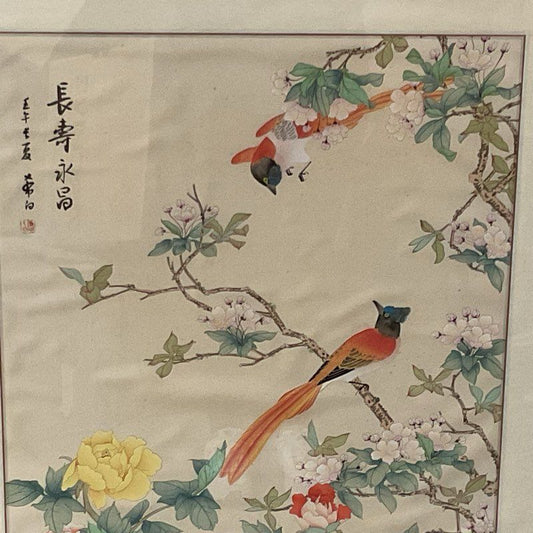 長壽永昌
壬午長夏